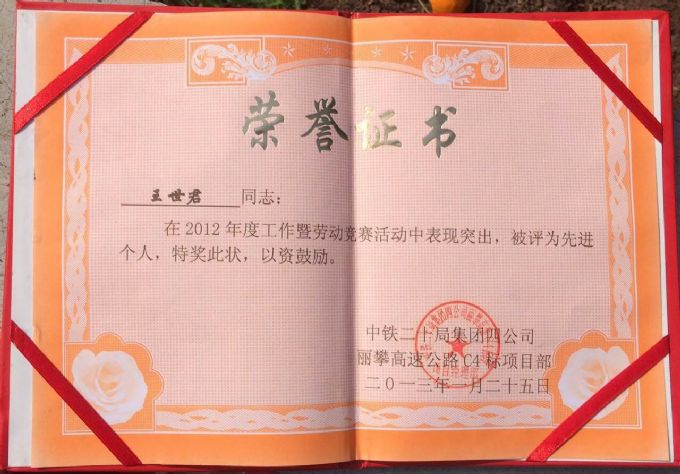 荣誉证书
王世君 同志：
在2012年度工作暨劳动竞赛活动中表现突出，被评为先进
个人，特奖此状，以资鼓励。
中铁二十局集团四公司
丽攀高速公路C4标项目部
二〇一三年一月二十五日